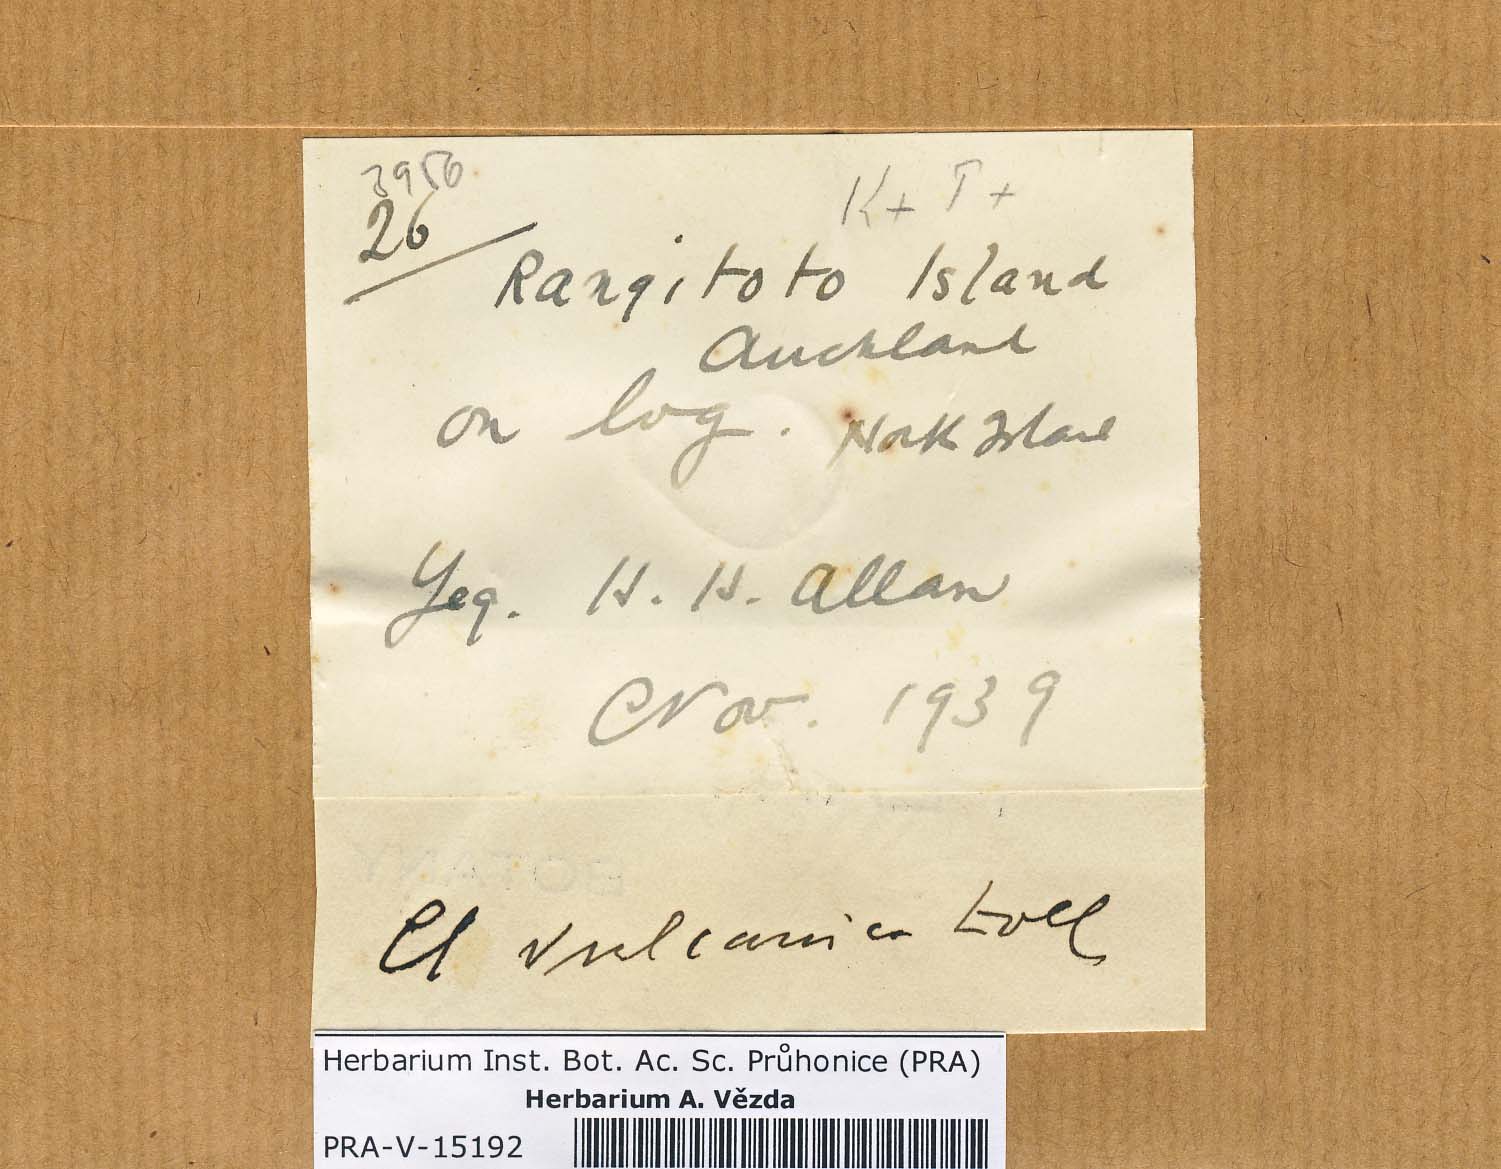 3956
K+ T+
26
Rangitoto Island
Auckland
on log. North Island
Leg. H. H. Allan
Nov. 1939
BOTANY
Cl vulcanica Zoll
Herbarium Inst. Bot. Ac. Sc. Průhonice (PRA)
Herbarium A. Vězda
PRA-V-15192